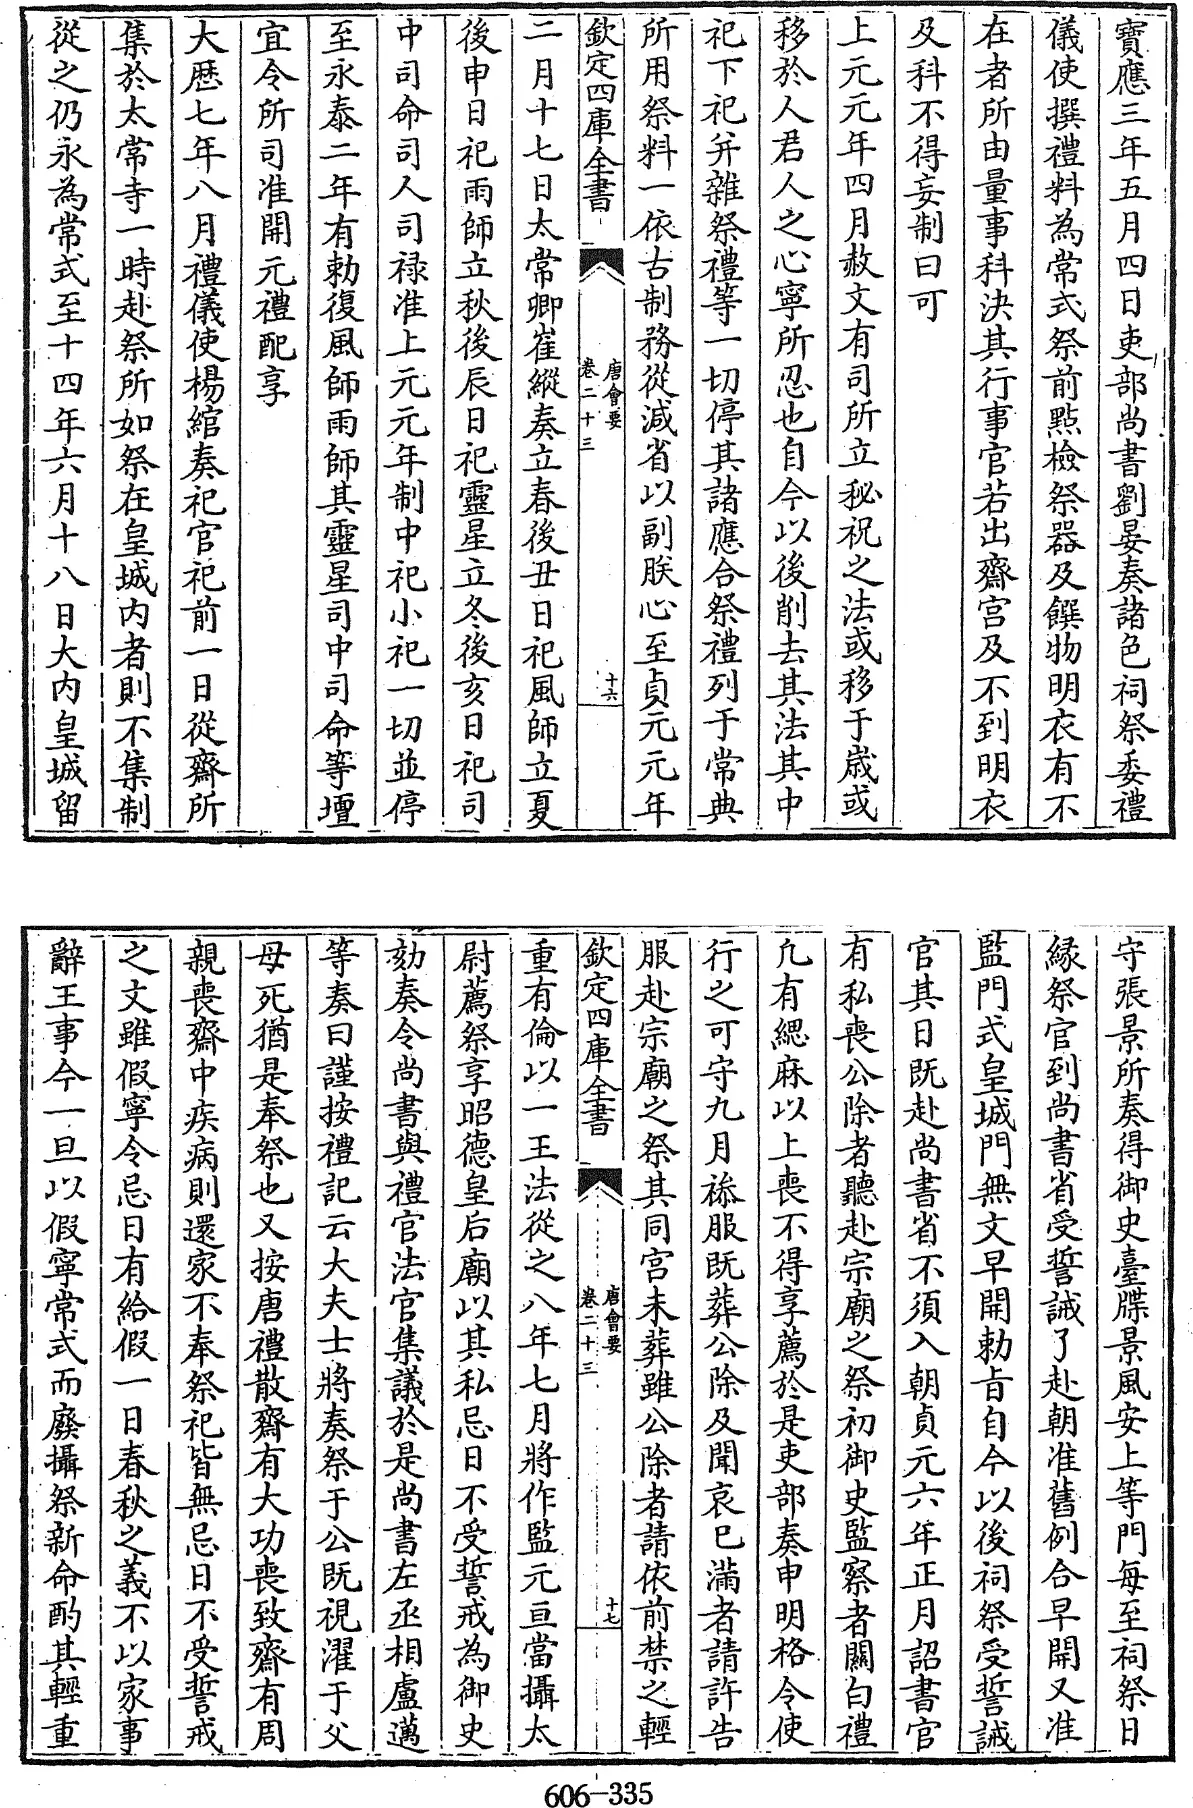 寶應三年五月四日吏部尚書劉晏奏諸色祠祭委禮
儀使撰禮料為常式祭前㸃檢祭器及饌物明衣有不
在者所由量事科決其行事官若出齋宮及不到明衣
及科不得妄制曰可
上元元年四月赦文有司所立秘祝之法或移于嵗或
移於人君人之心寧所忍也自今以後削去其法其中
祀下祀并雜祭禮等一切停其諸應合祭禮列于常典
所用祭料一依古制務從減省以副朕心至貞元元年
欽定四庫全書
唐會要
卷二十三
十六
二月十七日太常卿崔縱奏立春後丑日祀風師立夏
後申日祀雨師立秋後辰日祀靈星立冬後亥日祀司
中司命司人司禄准上元元年制中祀小祀一切並停
至永泰二年有勅復風師雨師其靈星司中司命等壇
宜令所司准開元禮配享
大歷七年八月禮儀使楊綰奏祀官祀前一日從齋所
集於太常寺一時赴祭所如祭在皇城内者則不集制
從之仍永為常式至十四年六月十八日大内皇城留
守張景所奏得御史臺牒景風安上等門每至祠祭日
縁祭官到尚書省受誓誡了赴朝准舊例合早開又准
監門式皇城門無文早開勅旨自今以後祠祭受誓誡
官其日既赴尚書省不須入朝貞元六年正月詔書官
有私喪公除者聽赴宗廟之祭初御史監察者關白禮
凢有緦麻以上喪不得享薦於是吏部奏申明格令使
行之可守九月祿服既葬公除及聞哀已滿者請許告
服赴宗廟之祭其同宮未葬雖公除者請依前禁之輕
欽定四庫全書
唐會要
卷二十三
十七
重有倫以一王法從之八年七月將作監元亘當攝太
尉薦祭享昭德皇后廟以其私忌日不受誓戒為御史
劾奏令尚書與禮官法官集議於是尚書左丞相盧邁
等奏曰謹按禮記云大夫士將奏祭于公既視濯于父
母死猶是奉祭也又按唐禮散齋有大功喪致齋有周
親喪齋中疾病則還家不奉祭祀皆無忌日不受誓戒
之文雖假寧令忌日有給假一日春秋之義不以家事
辭王事今一旦以假寧常式而廢攝祭新命酌其輕重
606-335